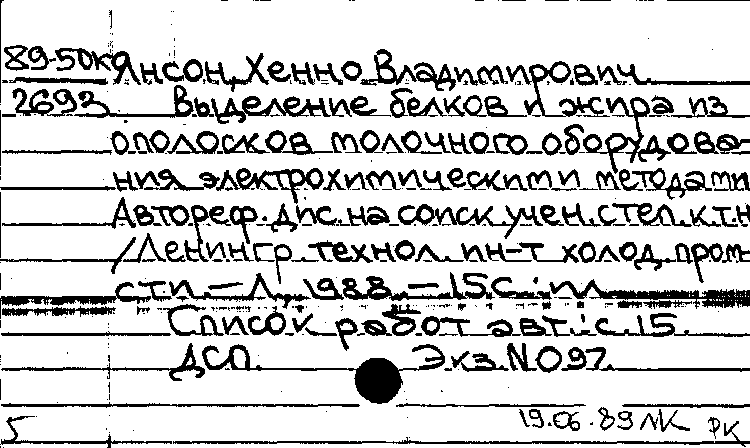 89-50к Янсон, Хенно Владимирович.
2693 Выделение белков и жира из
ополосков молочного оборудова-
ния электрохимическими методами
Автореф. дис. на соиск. учен. степ. к.т.н
/Ленингр. технол. ин-т холод. пром-
сти. — Л., 1988. — 15 с.: ил
Список работ авт.: с. 15.
ДСП. Экз. N 097.
19.06.89 РК
5